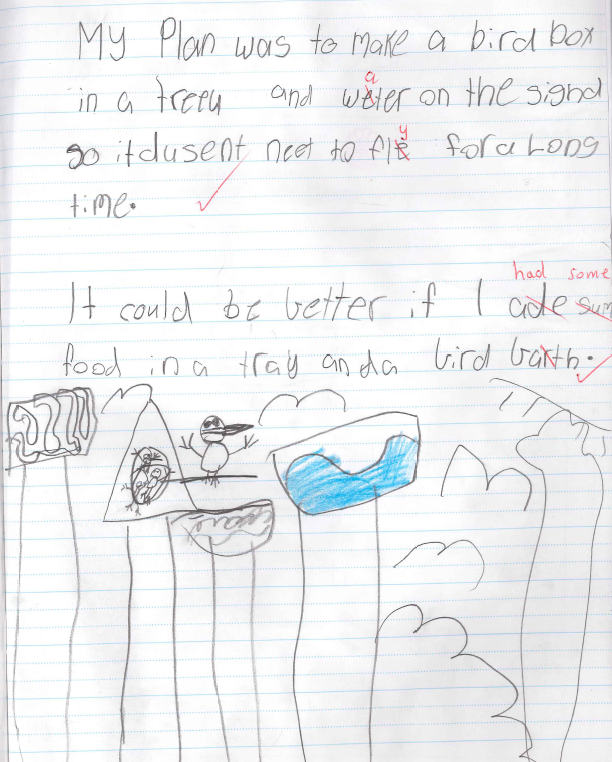 My Plan was to make a bird box
a
in a treeu and weter on the signd
y
so it dusent neet to fle for a Long
time.
had some
It could be better if I ade sum
food in a tray and a bird barth.